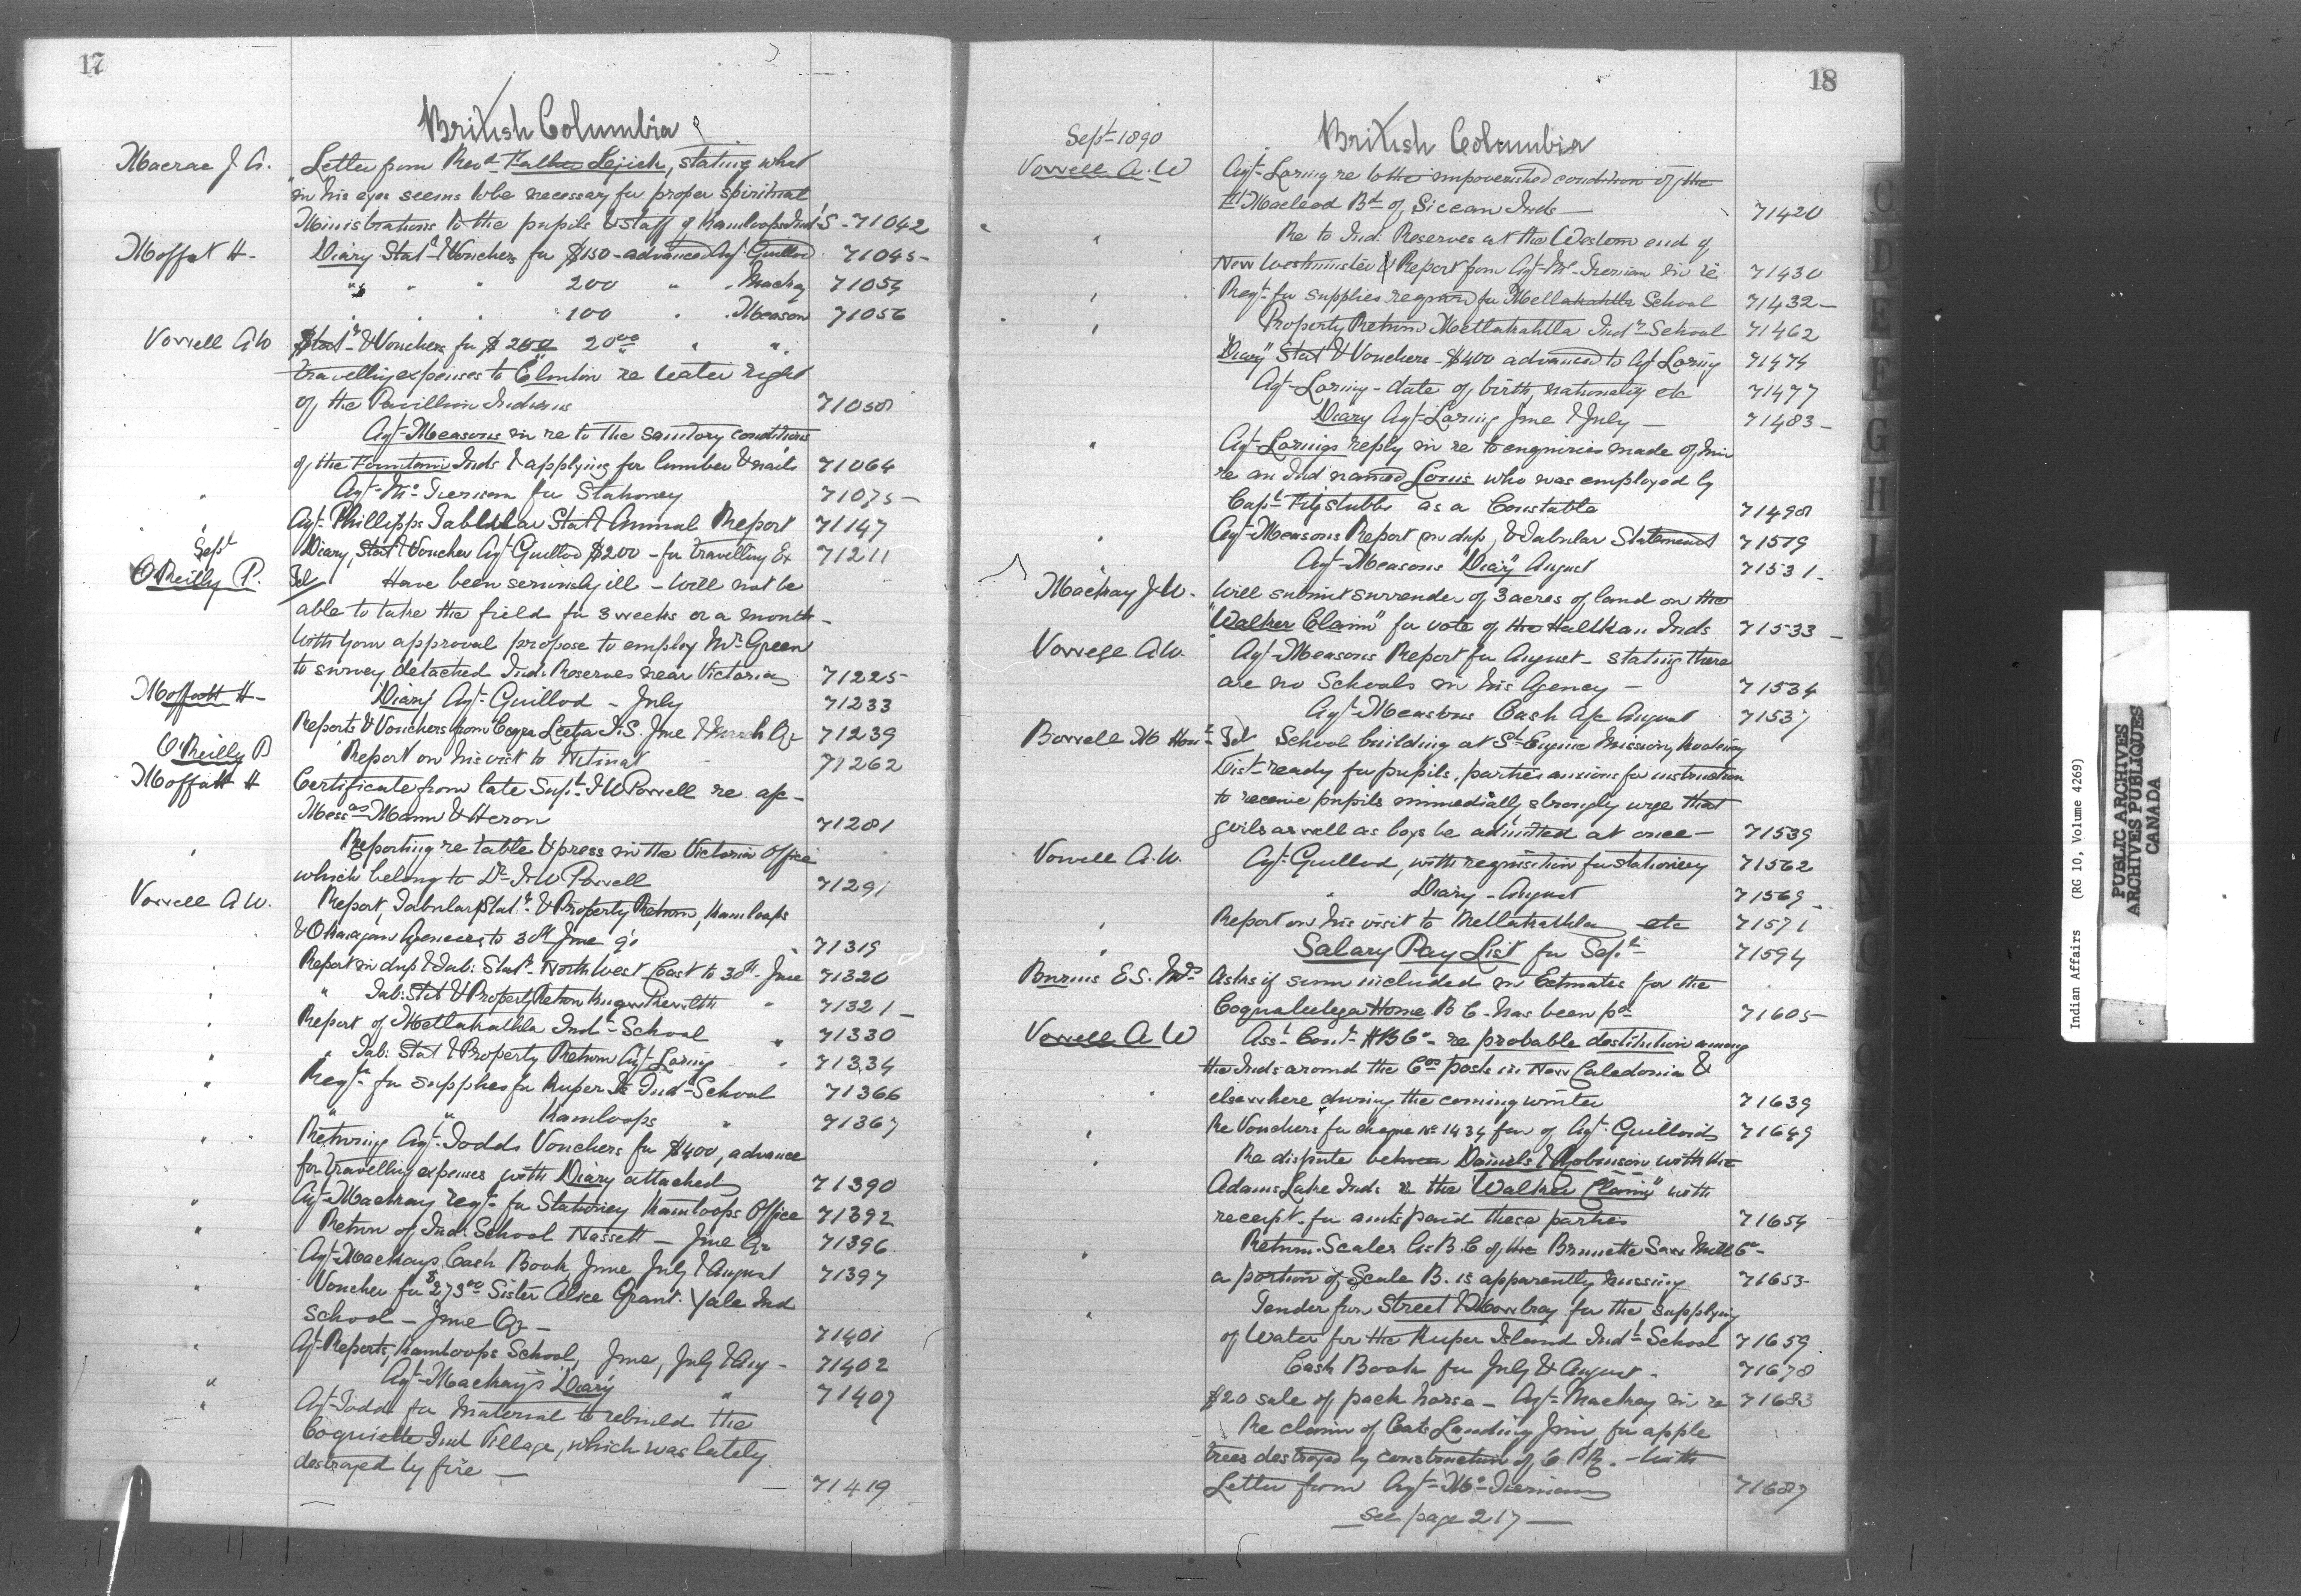 17
British Columbia
Macrae J. A. Letter from Revd Father Lejick, stating what
in his eyes seems to be necessary for proper spiritual
Ministrations to the pupils & staff of Kamloops Ind'l S - 71042
Moffat H - Diary Stat & Vouchers for $150 - advanced Agt Guillod 71045 -
" " " 200 " " Mackay 71054
" " " 100 " " Meason 71056
Vowell AW Stat & Vouchers for $ 20.00 " "
travelling expenses to Clinton re Water right
of the Pavillion Indians 71058
Agt Measons in re to the sanitary conditions
of the Fountain Inds & applying for lumber & nails 71064
" Agt McTiernan for Stationery 71075 -
" Agt Phillipps Tabular Stat & Annual Report 71147
Sept Diary, Stat & Voucher Agt Guillod $200 - for travelling Ex 71211
O'Reilly P. Tel Have been seriously ill - will not be
able to take the field for 3 weeks or a month -
with your approval propose to employ Mr Green
to survey detached Ind: Reserves near Victoria 71225
Moffatt H - Diary Agt Guillod - July 71233
Reports & Vouchers from Coqualeetza I.S. June & March Qr 71239
O'Reilly P Report on his visit to Nitinat 71262
Moffatt H Certificate from late Supt I W Powell re a/c -
Messrs Mann & Heron 71281
" Reporting re table & press in the Victoria Office
which belong to Dr I W Powell 71291
Vowell A W. Report, Tabular Stat & Property Return, Kamloops
& Okanagan Agencies to 30th June 90 71319
" Report in dup & Tab: Stat - North West Coast to 30th June 71320
" " Tab: Stat & Property Return Kwawkewlth " 71321 -
" Report of Metlakahtla Ind - School " 71330
" " Tab: Stat & Property Return Agt Loring " 71334
" Reqn for supplies for Kuper Is Ind School 71366
" " Kamloops " 71367
" Returning Agt Todds Vouchers for $400, advance
for travelling expenses with Diary attached 71390
" Agt Mackay reqn for Stationery Kamloops Office 71392
" Return of Ind: School Massett - June Qr 71396
Agt Mackays Cash Book, June July & August 71397
" Voucher for $273.00 Sister Alice Grant. Yale Ind
School - June Qr - 71401
" Agt Reports, Kamloops School, June, July & Aug - 71402
" Agt Mackay's Diary " 71407
" Agt Todd for Material to rebuild the
Ind Village, which was lately
destroyed by fire - 71419
18
Sept - 1890 British Columbia
Vowell A. W Agt Loring re to the impoverished condition of the
Ft Macleod Bd of Siccan Inds - 71420
" Re to Ind: Reserves at the Western end of
New Westminster & Report from Agt McTiernan in re 71430
" Reqn for supplies required for Metlakahtla School 71432 -
" Property Return Metlakahtla Indn School 71462
"Diary" Stat & Vouchers - $400 advanced to Agt Loring 71474
Agt Loring - date of birth, nationality etc 71477
Diary Agt Loring June & July - 71483 -
" Agt Lorings reply in re to enquiries made of him
re an Ind named Louis who was employed by
Capt Fitzstubbs as a Constable 71498
" Agt Measons Report in dup, & Tabular Statement 71519
Agt Measons Diary August 71531 -
Mackay J. W. Will submit surrender of 3 acres of land on the
"Walker Claim" for vote of the Halthan Inds 71533 -
Vowell A.W. Agt Measons Report for August - stating there
are no Schools in his Agency - 71534
Agt Measons Cash a/c August 71537
Bowell M Hon - Tel School building at St Eugene Mission, Kootenay
Dist ready for pupils, parties anxious for instruction
to receive pupils immediatly, strongly urge that
girls as well as boys be admitted at once - 71539
Vowell A.W. Agt Guillod, with requisition for stationery 71562
" Diary - August 71569 -
" Report on his visit to Metlakahtla etc 71571
" Salary Pay List for Sept 71594
Burns E.S. Mrs Asks if sum included in Estimates for the
Coqualeetza Home B C - has been pd 71605 -
Vowell A W Asst Comr H B Co - re probable destitution among
the Inds around the Cos posts in New Caledonia &
elsewhere during the coming winter 71639
" Re Vouchers for cheque No 1434 fav of Agt Guillods 71649
" Re dispute between Daniels & Robinson with the
Adams Lake Inds re the "Walker Claim" with
receipt for amts paid these parties 71654
" Return Scales A & B C of the Brunette Saw Mill Co -
a portion of Scale B. is apparently missing 71653
" Tender from Street & Mowbray for the supplying
of Water for the Kuper Island Indl School 71659
Cash Book for July & August - 71678
$20 sale of pack horse - Agt Mackay in re 71683
Re claim of Cats Landing Jim for apple
trees destroyed by construction of C P R. - with
Letter from Agt McTiernan 71687
See page 217 -
C
D
E
F
G
H
Indian Affairs (RG 10, Volume 4269)
PUBLIC ARCHIVES
ARCHIVES PUBLIQUES
CANADA